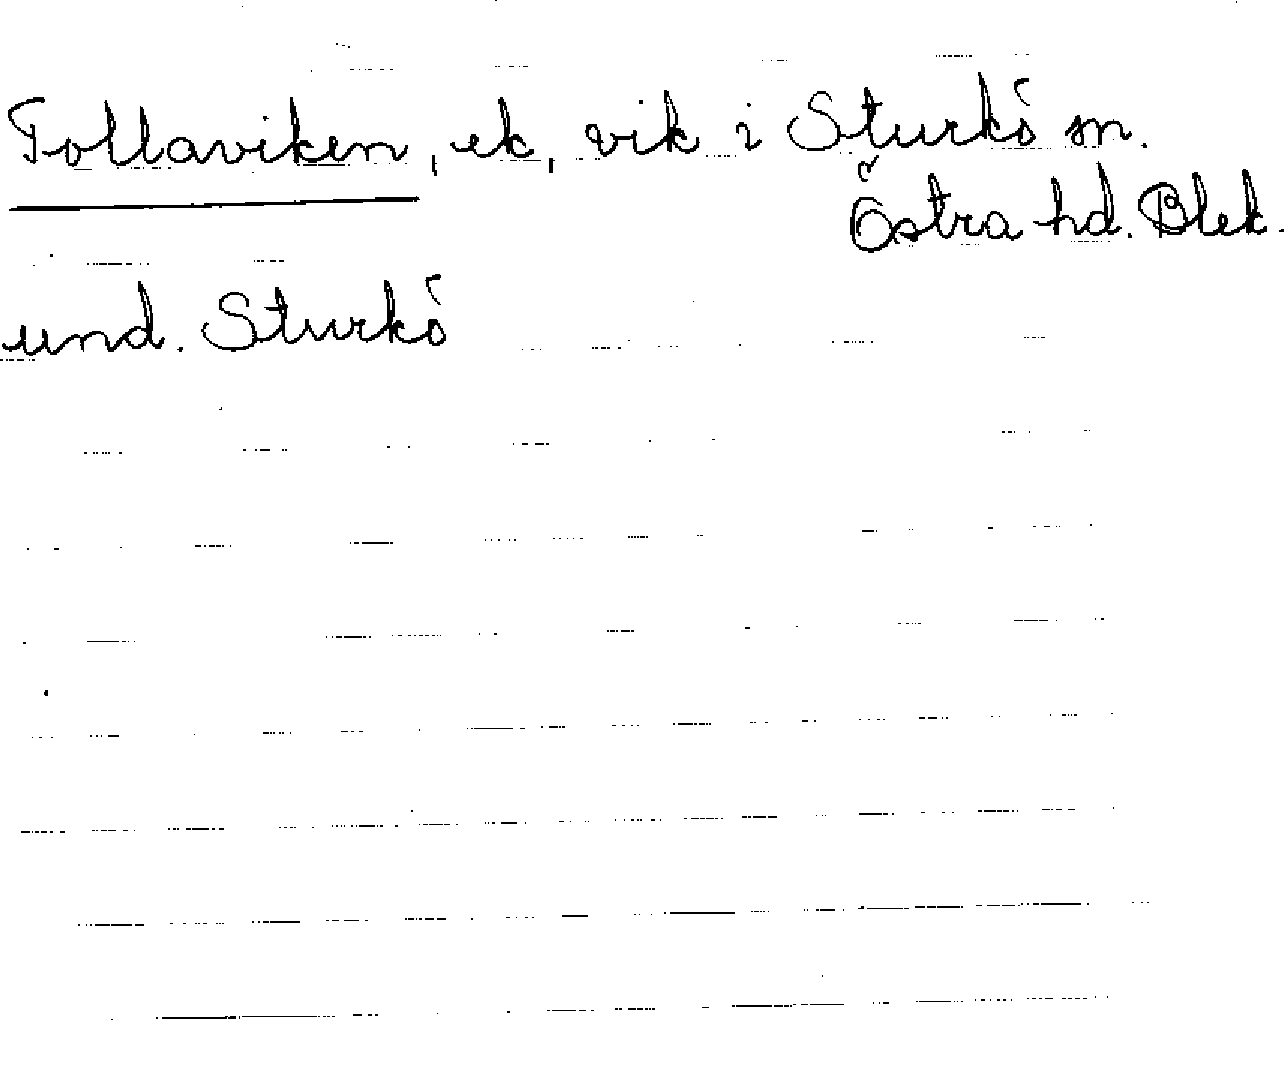 Tollaviken, ek, vik i Sturkö sn.
Östra hd. Blek.
und. Sturkö